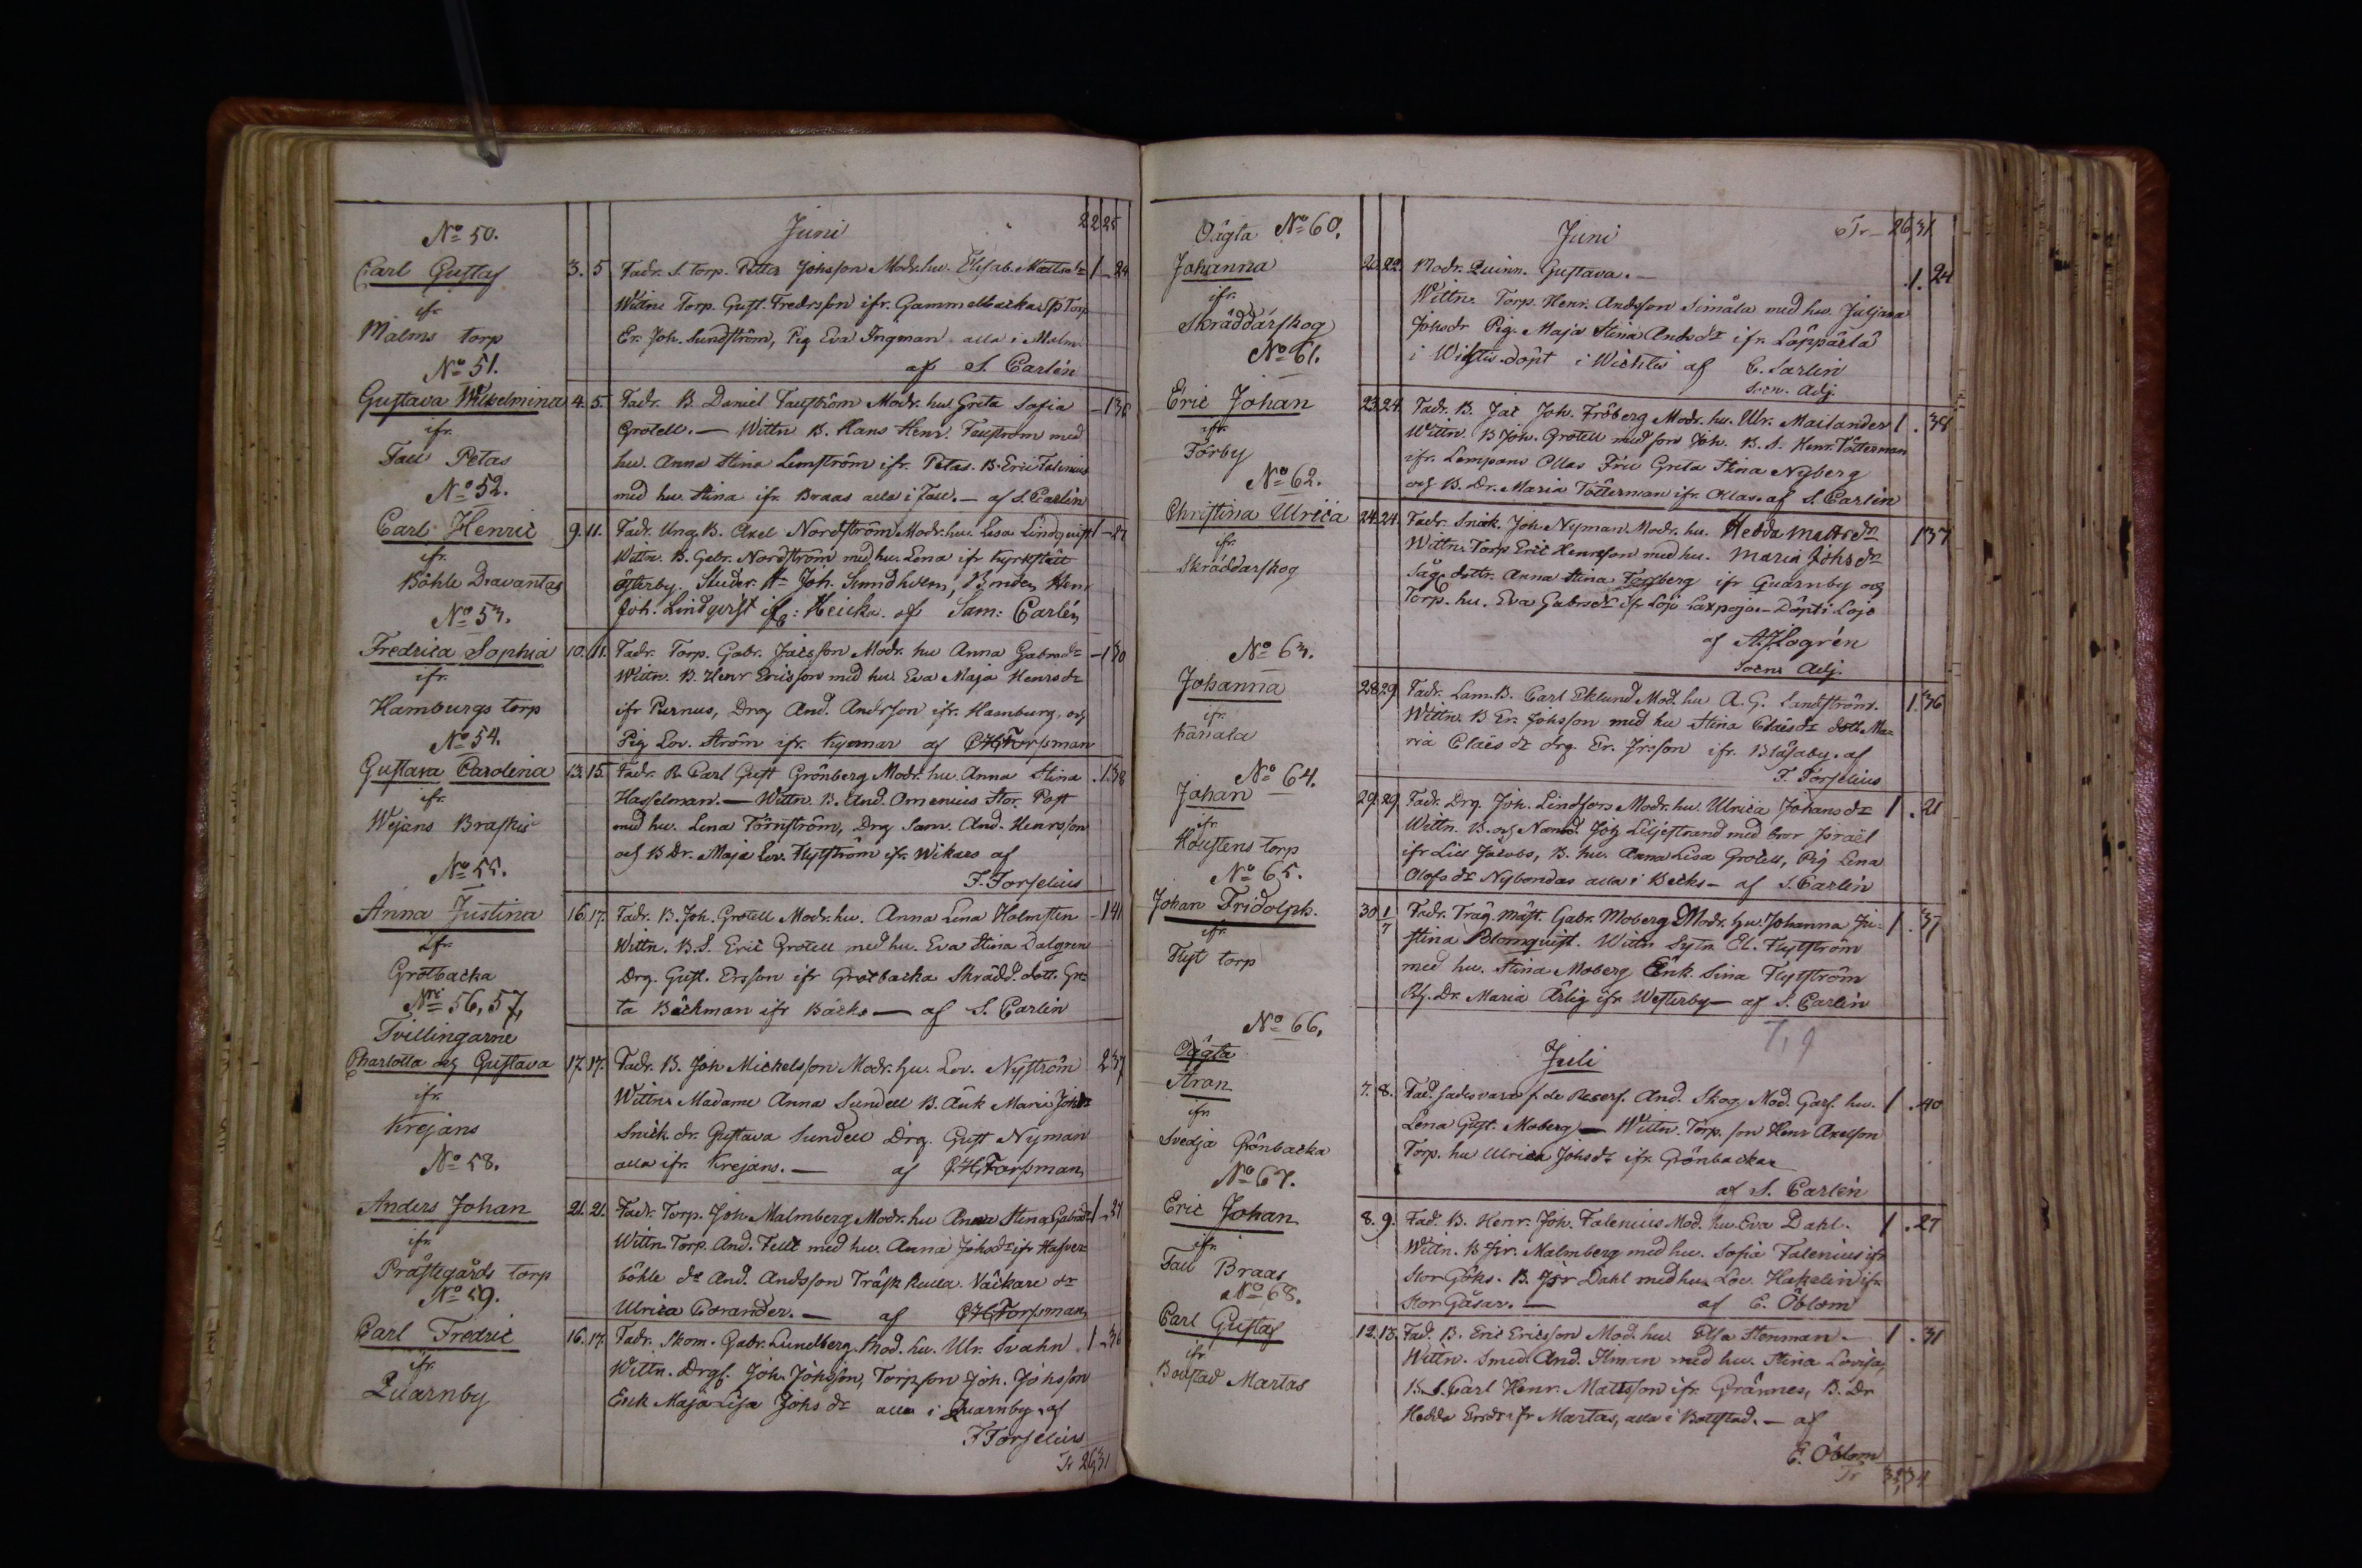 Juni 22 25
No 50.
Carl Gustaf 3. 5 Fadr. S. Torp. Petter Johsson Modr. hu. Elisab. Mattsdr 1 - 24
ifr. Wittn. Torp. Gust. Fredrsson ifr. Gammelbacka Torp
Malms torp Er. Joh. Sundström, Pig Eva Ingman alla i Malm.
af S. Carlén
No 51.
Gustava Wilhelmina 4. 5. Fadr. B. Daniel Tauström Modr. hu. Greta Sofia - 1 36
ifr. Grotell. — Wittn. B. Hans Henr. Tauström med
Tall Petas hu. Anna Stina Lemström ifr. Petas. B. Eric Falenius
med hu. Stina ifr. Braas alla i Tall. — af S. Carlén
No 52.
Carl Henric 9. 11. Fadr. Ung. B. Axel Nordström Modr. hu. Lisa Lindqvist 1 - 27
ifr. Wittn. B. Gabr. Nordström med hu. Lena ifr Kyrkslätt
Böhle Dravantas Österby. Studer. Hr Joh. Sundholm, Bonden Henr
Joh. Lindqvist ifr: Heicka. af Sam: Carlén
No 53.
Fredrica Sophia 10. 11. Fadr. Torp. Gabr. Jacsson Modr. hu Anna Gabrsdr - 1 30
ifr. Wittn. B. Henr Ericsson med hu. Eva Maja Henrsdr
Hamburgs torp ifr Purnus, Drg And. Andrsson ifr. Hamburg, och
Pig Lov. Ström ifr. af C.H. Forsman
No 54.
Gustava Carolina 13. 15. Fadr. B. Carl Gust Grönberg Modr. hu. Anna Stina . 1 38
ifr. Hasselman. — Wittn. B. And. Omenius Stor Post
Wejans Braskis med hu. Lena Törnström, Drg Sam. And. Henrsson
och B Dr. Maja Lov. Flytström ifr. Wikars af
F. Forselius
No 55.
Anna Justina 16. 17. Fadr. B. Joh. Grotell Modr. hu. Anna Lena Holmsten - 1 41
ifr. Wittn. B. S. Eric Grotell med hu. Eva Stina Dalgren
Grotbacka Drg. Gust. Ersson ifr Grotbacka Skrädd. dott. Gre-
ta Bäckman ifr Bäcks — af S. Carlén
Nris 56, 57,
Tvillingarne
Charlotta och Gustava 17. 17. Fadr. B. Joh Mickelsson Modr. hu. Lov. Nyström 2 37
ifr. Wittn. Madame Anna Sundell B. Änk Maria Johsdr
Krejans Snick. dr. Gustava Sundell Drg. Gust Nyman
alla ifr. Krejans. — af C.H. Forsman
No 58.
Anders Johan 21. 21. Fadr. Torp. Joh Malmberg Modr. hu Anna Stina Gabrsdr 1 - 27
ifr. Wittn. Torp. And. Fellt med hu. Anna Johsdr ifr Hasver-
Prästegårds torp böhle dr And. Andsson Träsk Kulla. Väckare dr
Ulrica Corander. — af C.H. Forsman
No 59.
Carl Fredric 16. 17. Fadr. Skom. Gabr. Lundberg Mod. hu. Ulr. Svahn 1 - 36
ifr. Wittn. Drgs. Joh. Johsson, Torp son Joh. Johsson
Quarnby Enk Maja Lisa Johsdr alla i Quarnby. af
F Forselius
Tr 26,31
Juni Tr — 26,31
Oägta No 60.
Johanna 20. 22. Modr. Quinn. Gustava. — 1. 24
ifr. Wittn. Torp. Henr. Andsson Simåla med hu. Juljana
Skräddarskog Johsdr Pig. Maja Stina Andsdr ifr. Löppärlä
i Wichtis döpt i Wichtis af E. Sarlin
Socn. Adj.
No 61.
Eric Johan 23. 24. Fadr. B. Jac Joh. Fröberg Modr. hu. Ulr. Mailander 1. 38
ifr. Wittn. B Joh. Grotell med son Joh. B. S. Henr. Tötterman
Torby ifr. Lempans Ollas Fru Greta Stina Nyberg
och B. Dr. Maria Tötterman ifr. Ollas. af S. Carlén
No 62.
Christina Ulrica 24. 24. Fadr. Snick. Joh Nyman Modr. hu. Hedda Mattsdr 1 37
ifr. Wittn. Torp Eric Henrsson med hu. Maria Johsdr
Skräddarskog Såg. dottr. Anna Stina Forsberg ifr Quarnby och
Torp. hu. Eva Gabrsdr ifr Lojo Laxpojo — Döpt i Lojo
af A.J. Logrén
Socns Adj.
No 63.
Johanna 28. 29. Fadr. Lam. B. Carl Eklund Mod. hu A. G. Landström. 1. 36
ifr. Wittn. B Er. Johsson med hu Stina Claesdr dott. Ma-
Kanala ria Claesdr drg. Er. Jacsson ifr. Bläsaby. af
F. Forselius
No 64.
Johan 29. 29. Fadr. Drg. Joh. Lindfors Modr. hu. Ulrica Johansdr 1. 21
ifr. Wittn. B. och Nämd. Joh Liljestrand med bror Israël
Höustens torp ifr Lill Jacobs, B. hu. Anna Lisa Grotell, Pig Lena
Olofsdr Nybondas alla i Becks — af S. Carlén
No 65.
Johan Fridolph. 30. 1/7 Fadr. Träg. mäst. Gabr. Moberg Modr. hu. Johanna Ju- 1. 37
ifr. stina Blomquist. Wittn Sytn. El. Flytström
Flyt torp med hu. Stina Moberg Enk. Stina Flytström
Dr. Maria Ärlig ifr Westerby — af S. Carlén
Juli
No 66,
Oägta
Aron 7. 8. Fad. sades vara f. de Reserf. And. Skog Mod. Garf. hu. 1. 40
ifr Lena Gust. Moberg — Wittn. Torp. son Henr Axelson
Svedja Grönbacka Torp. hu Ulrica Johsdr ifr. Grönbacka
af S. Carlén
No 67.
Eric Johan 8. 9. Fad. B. Henr. Joh. Falenius Mod. hu. Eva Dahl. 1. 27
ifr. Wittn. B Jsr. Malmberg med hu. Sofia Falenius ifr
Tall Braas Stor Göks. B. Jsr Dahl med hu. Lov. Hakelin ifr.
Stor Gåsar. — af E. Öblom
No 68.
Carl Gustaf 12. 13. Fad. B. Eric Ericsson Mod. hu. Elsa Stenman — 1. 31
ifr Wittn. Smed. And. Iman med hu. Stina Lovisa,
Bolstad Martas B. S. Carl Henr. Mattsson ifr. Grännes, B. Dr
Hedda Ersdr ifr Martas, alla i Bollstad. — af
E. Öblom
Tr 32,34